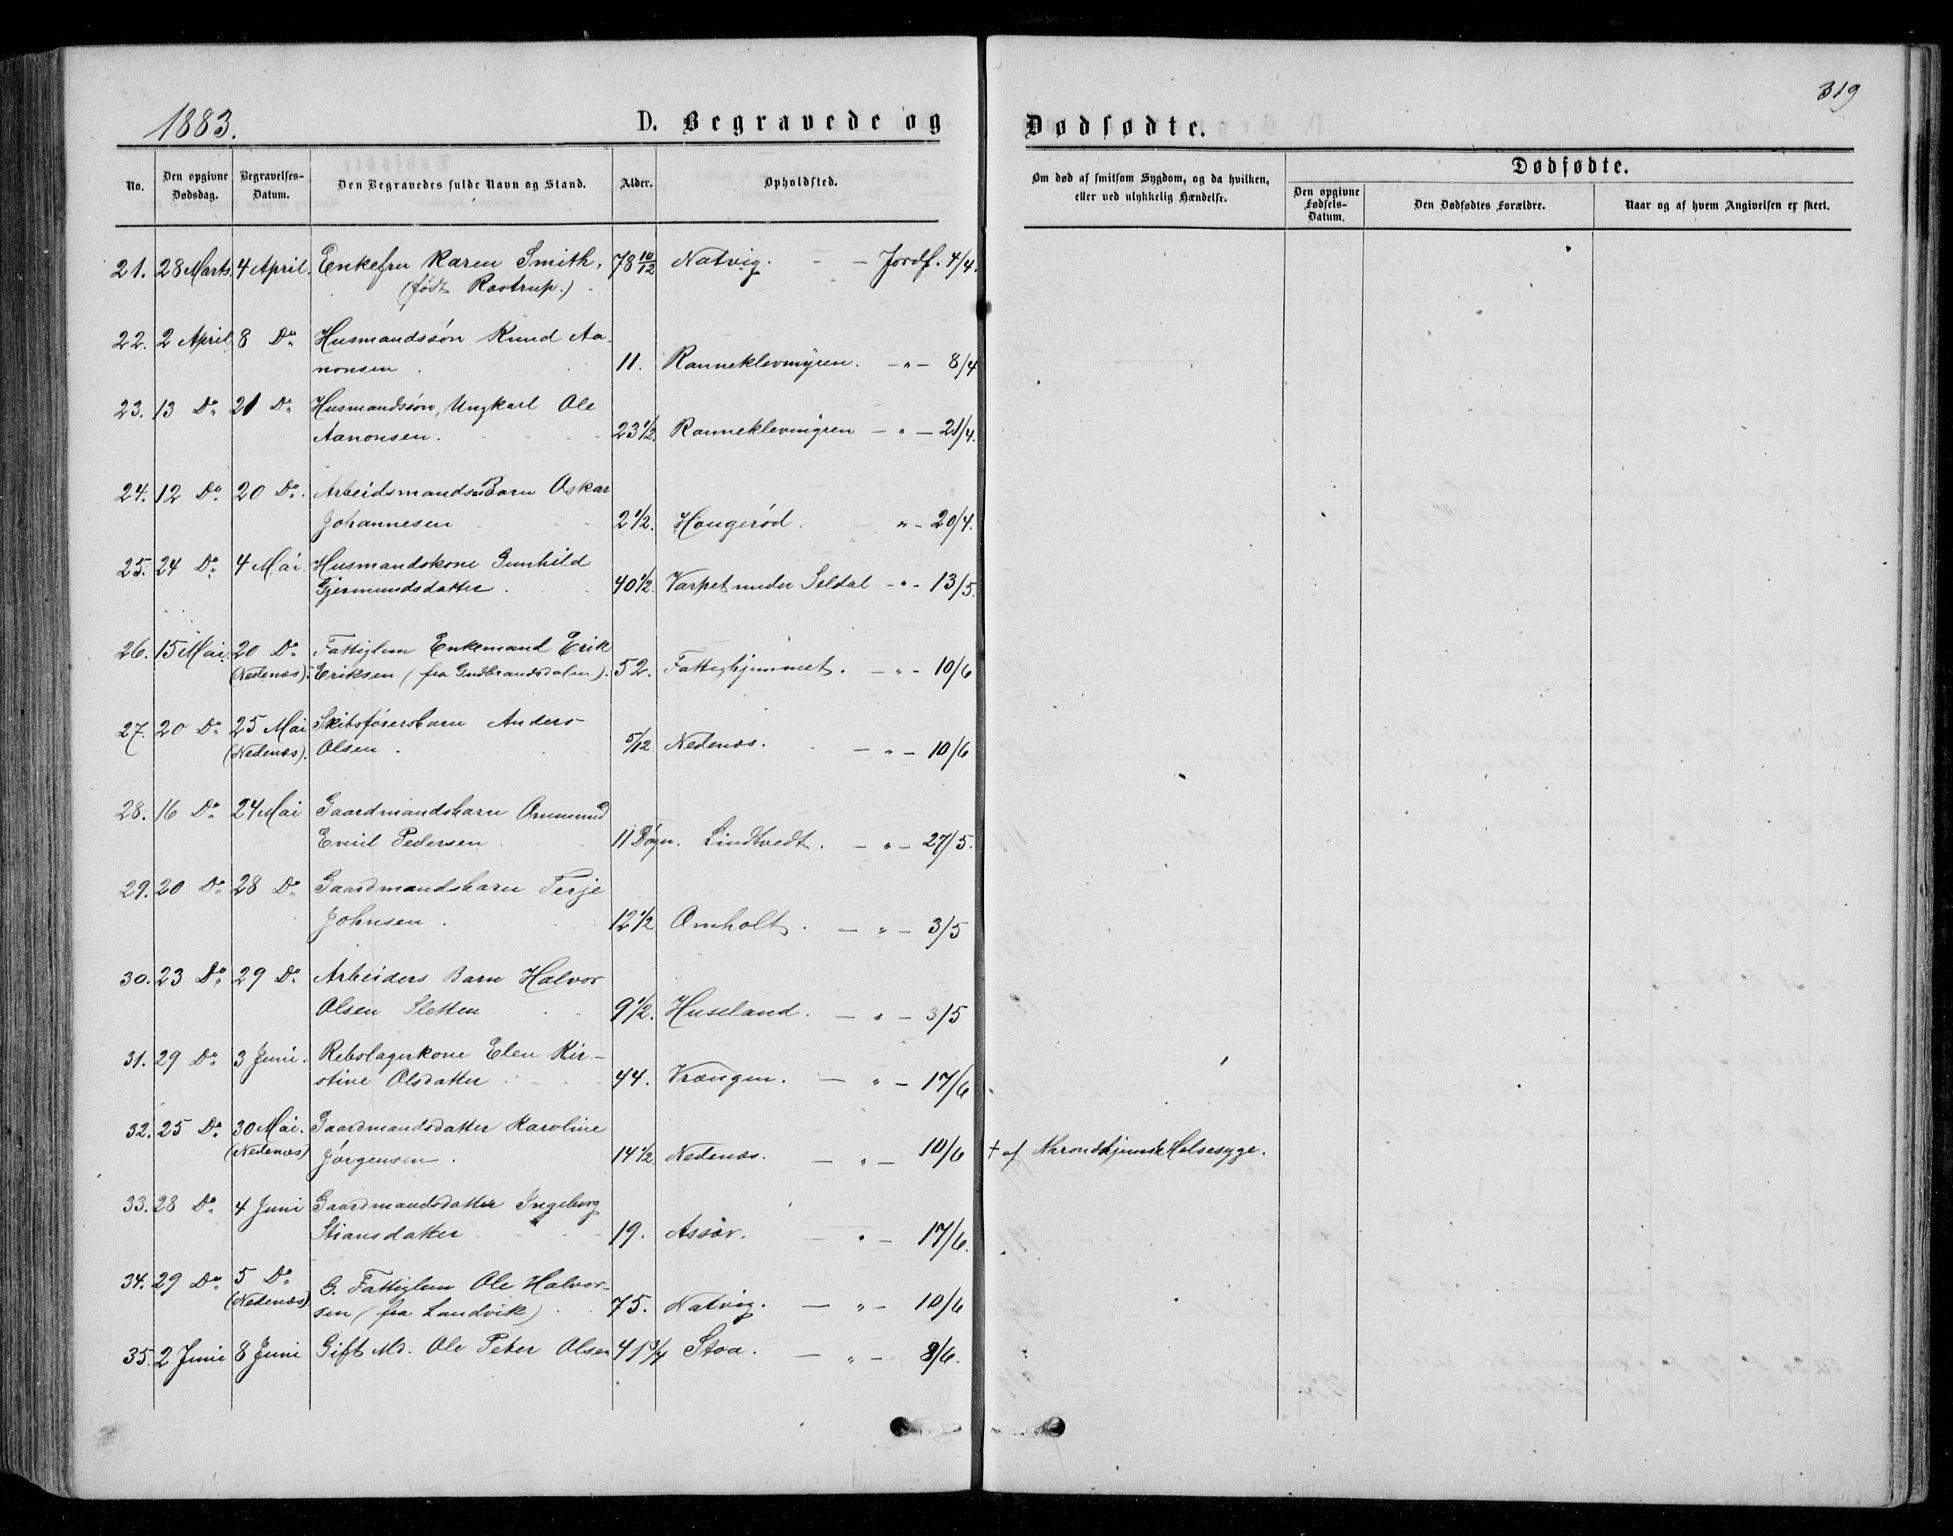 319
1883.
D. Begravede og Dødfødte.
No.
Den opgivne Dødsdag.
Begravelses-Datum.
Den Begravedes fulde Navn og Stand.
Alder.
Opholdsted.
Om død af smitsom Sygdom, og da hvilken, eller ved ulykkelig Hændelse.
Dødfødte.
Den opgivne Fødsels-Datum.
Den Dødfødtes Forældre.
Naar og af hvem Angivelsen er skeet.
21. 28 Marts. 4 April. Enkefru Karen Smith, 78 10/12 Natvig. — Jordf. 4/4.
(født Rostrup.)
22. 2 April 8 Do. Husmandssøn Knud Aa-
nonsen 11. Ranneklevmyren. — " — 8/4
23. 13 Do. 21 Do. Husmandssøn, Ungkarl Ole
Aanonsen. 23 1/2. Ranneklevmyren — " — 21/4.
24. 12 Do. 20 Do. Arbeidsmands Barn Oskar
Johannesen 2 1/2. Haugerød. " — 20/4.
25. 24 Do. 4 Mai. Husmandskone Gunhild
Gjermundsdatter. 40 1/2. Varpet under Seldal — " — 13/5.
26. 15 Mai. 20 Do. Fattiglem Enkemand Erik
(Nedenæs). Eriksen (fra Gudbrandsdalen). 52. Fattighjemmet. — " — 10/6
27. 20 Do. 25 Mai Skibsførersbarn Anders
(Nedenæs). Olsen. 5/12 Nedenæs. — " — 10/6
28. 16 Do. 24 Mai Gaardmandsbarn Ommund
Emil Pedersen 11 Døgn. Lindtvedt. — " — 27/5.
29. 20 Do. 28 Do. Gaardmandsbarn Terje
Johnsen. 12 1/2 Omholt. — " — 3/5
30. 23 Do. 29 Do. Arbeiders Barn Halvor
Olsen Sletten 9 1/2. Huseland. — " — 3/5
31. 29 Do. 3 Juni. Rebslagerkone Elen Kir-
stine Olsdatter 44. Vrængen. — " — 17/6
32. 25 Do. 30 Mai. Gaardmandsdatter Karoline
(Nedenæs) Jørgensen. 14 1/2 Nedenæs. — " — 10/6 † af Halsesyge.
33. 28 Do. 4 Juni Gaardmandsdatter Ingeborg
Stiansdatter 19. Assær. — " — 17/6.
34. 29 Do. 5 Do. G. Fattiglem Ole Halvor-
(Nedenæs) sen (fra Landvik) 75. Natvig. — " — 10/6
35. 2 Juni 8 Juni Gift Md. Ole Peter Olsen 41 3/4 Stoa. — " — 8/6.